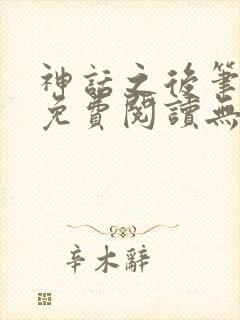 神話之後筆
免費閱讀無
辛木辭